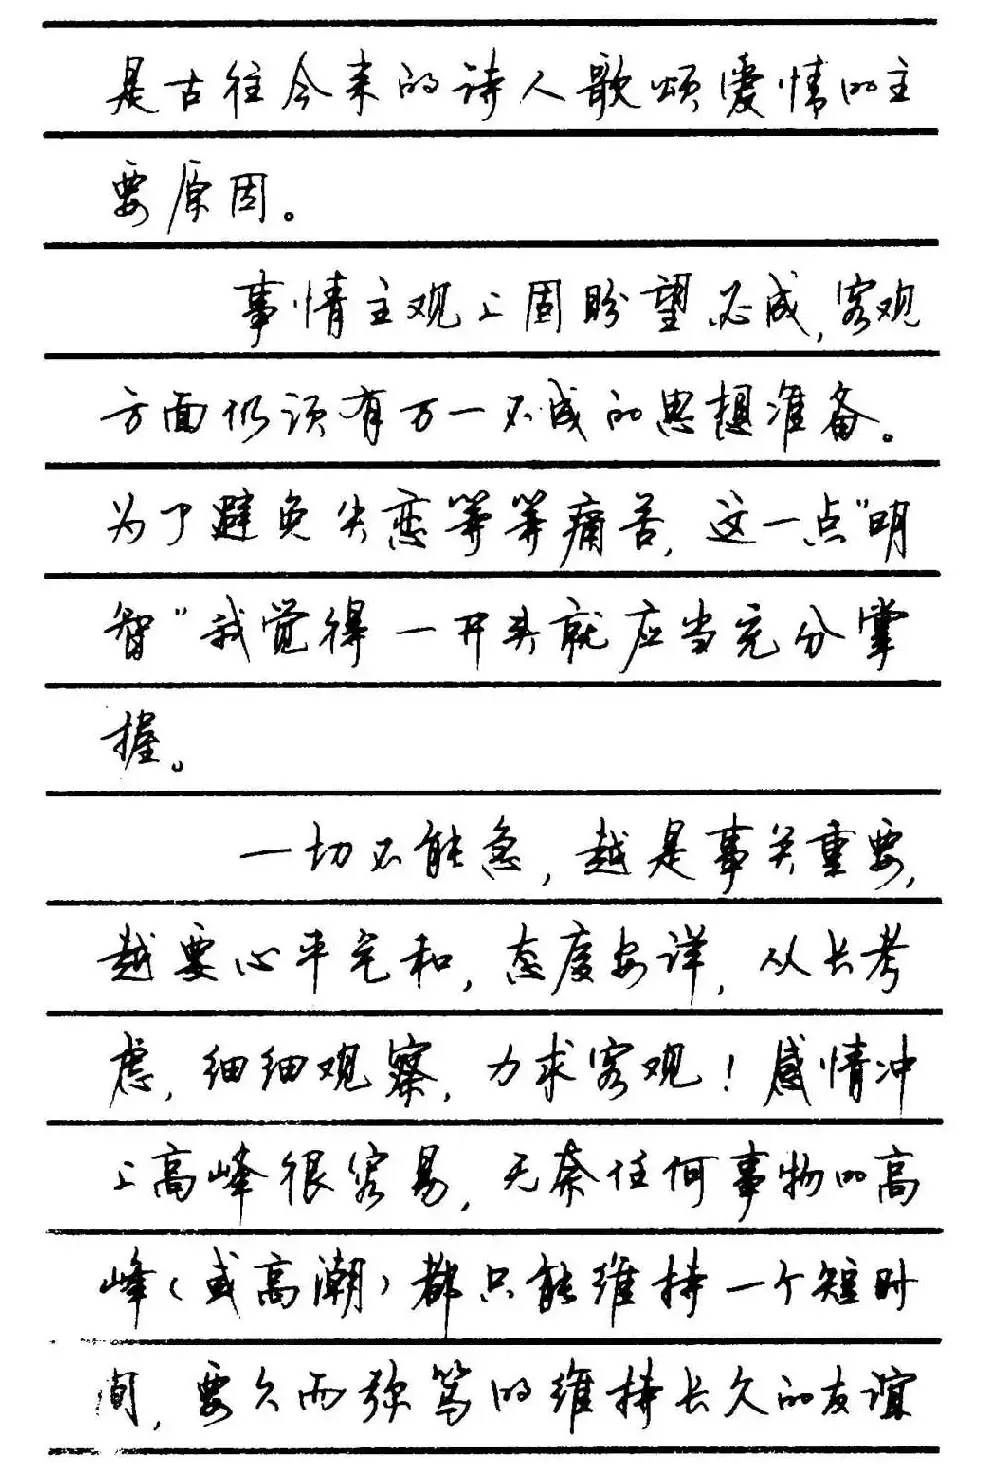 是古往今来的诗人歌颂爱情的主
要原因。
事情主观上固盼望必成，客观
方面仍须有万一不成的思想准备。
为了避免失恋等等痛苦，这一点“明
智”我觉得一开头就应当充分掌
握。
一切不能急，越是事关重要，
越要心平气和，态度安详，从长考
虑，细细观察，力求客观！感情冲
上高峰很容易，无奈任何事物的高
峰（或高潮）都只能维持一个短时
间，要久而弥笃的维持长久的友谊